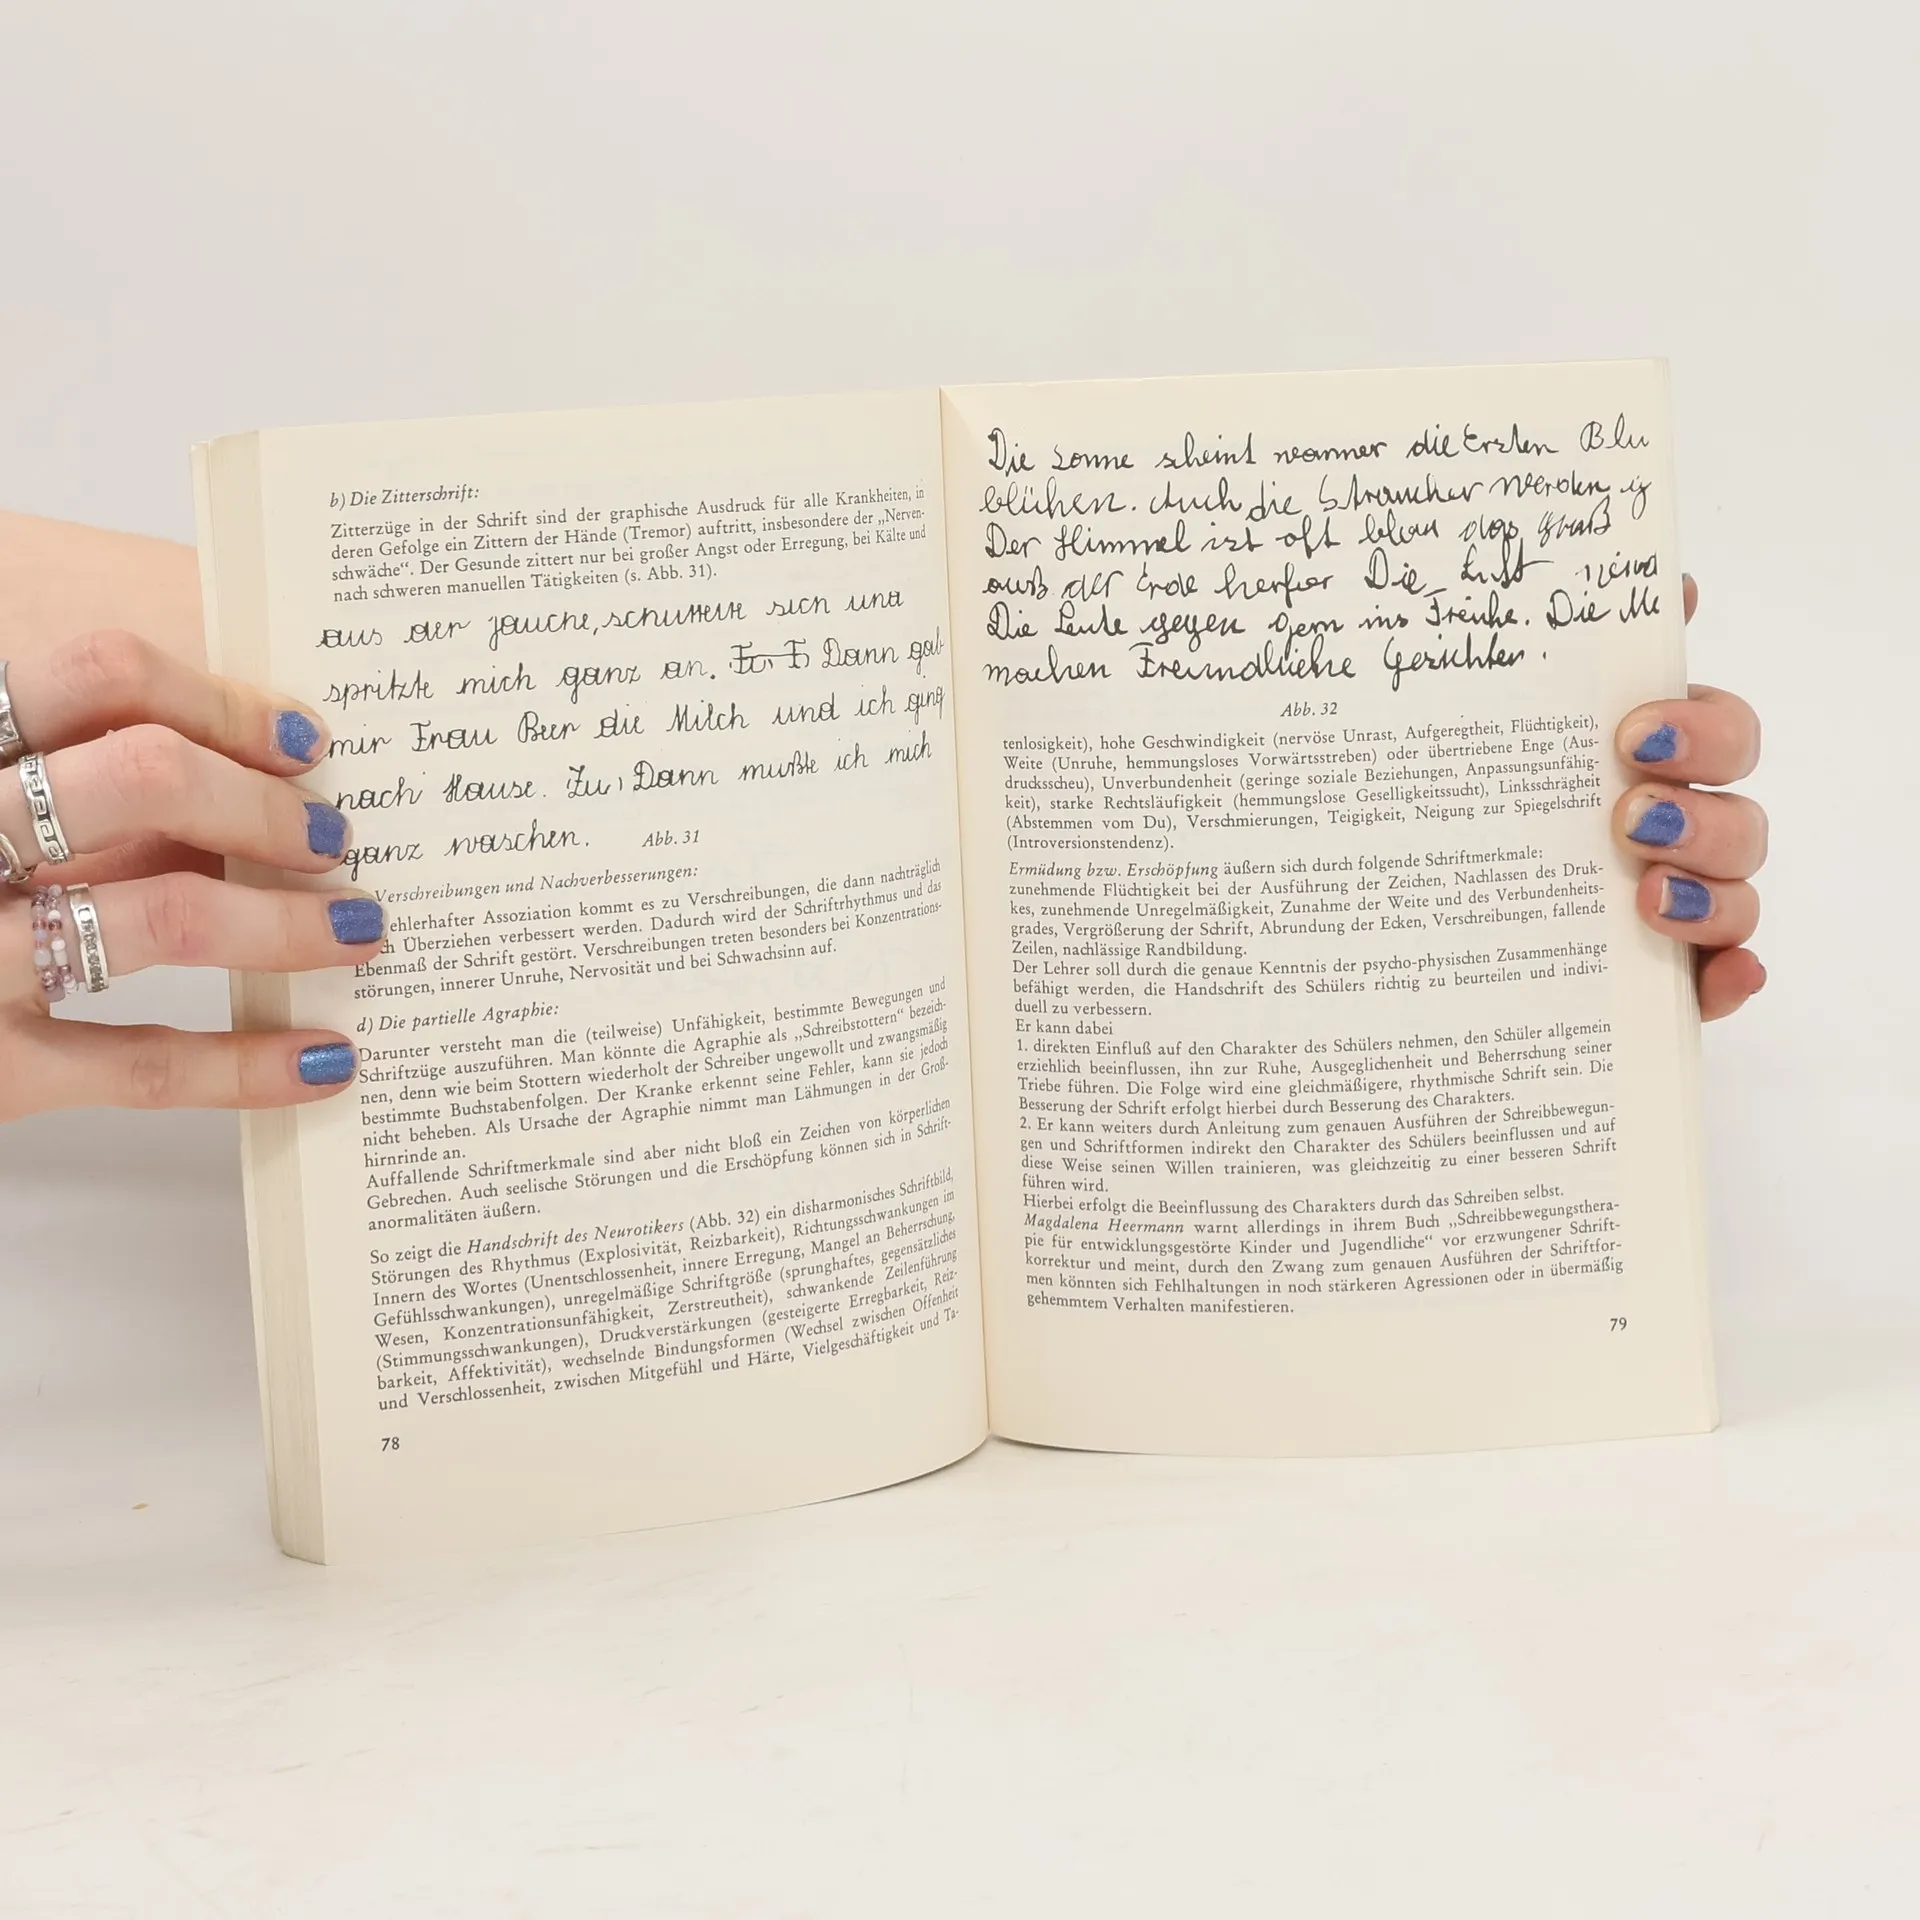 b) Die Zitterschrift:
Zitterzüge in der Schrift sind der graphische Ausdruck für alle Krankheiten, in
deren Gefolge ein Zittern der Hände (Tremor) auftritt, insbesondere der „Nerven-
schwäche“. Der Gesunde zittert nur bei großer Angst oder Erregung, bei Kälte und
nach schweren manuellen Tätigkeiten (s. Abb. 31).
aus der Jauche, schüttelte sich und
spritzte mich ganz an. Dann gab
mir Frau Beer die Milch und ich ging
nach Hause. Zu, Dann mußte ich mich
ganz waschen.
Abb. 31
Verschreibungen und Nachverbesserungen:
ehlerhafter Assoziation kommt es zu Verschreibungen, die dann nachträglich
h Überziehen verbessert werden. Dadurch wird der Schriftrhythmus und das
Ebenmaß der Schrift gestört. Verschreibungen treten besonders bei Konzentrations-
störungen, innerer Unruhe, Nervosität und bei Schwachsinn auf.
d) Die partielle Agraphie:
Darunter versteht man die (teilweise) Unfähigkeit, bestimmte Bewegungen und
Schriftzüge auszuführen. Man könnte die Agraphie als „Schreibstottern“ bezeich-
nen, denn wie beim Stottern wiederholt der Schreiber ungewollt und zwangsmäßig
bestimmte Buchstabenfolgen. Der Kranke erkennt seine Fehler, kann sie jedoch
nicht beheben. Als Ursache der Agraphie nimmt man Lähmungen in der Groß-
hirnrinde an.
Auffallende Schriftmerkmale sind aber nicht bloß ein Zeichen von körperlichen
Gebrechen. Auch seelische Störungen und die Erschöpfung können sich in Schrift-
anormalitäten äußern.
So zeigt die Handschrift des Neurotikers (Abb. 32) ein disharmonisches Schriftbild,
Störungen des Rhythmus (Explosivität, Reizbarkeit), Richtungsschwankungen im
Innern des Wortes (Unentschlossenheit, innere Erregung, Mangel an Beherrschung,
Gefühlsschwankungen), unregelmäßige Schriftgröße (sprunghaftes, gegensätzliches
Wesen, Konzentrationsunfähigkeit, Zerstreutheit), schwankende Zeilenführung
(Stimmungsschwankungen), Druckverstärkungen (gesteigerte Erregbarkeit, Reiz-
barkeit, Affektivität), wechselnde Bindungsformen (Wechsel zwischen Offenheit
und Verschlossenheit, zwischen Mitgefühl und Härte, Vielgeschäftigkeit und Ta-
78
Die sonne scheint warmer die Ersten Blu
blühen. Auch die Straucher werden
Der Himmel ist oft blau das graß
auß der Erde herfor Die Luft
Die Leute gegen gern ins Freihe. Die Me
machen Freundliche Gesichter.
Abb. 32
tenlosigkeit), hohe Geschwindigkeit (nervöse Unrast, Aufgeregtheit, Flüchtigkeit),
Weite (Unruhe, hemmungsloses Vorwärtsstreben) oder übertriebene Enge (Aus-
drucksscheu), Unverbundenheit (geringe soziale Beziehungen, Anpassungsunfähig-
keit), starke Rechtsläufigkeit (hemmungslose Geselligkeitssucht), Linksschrägheit
(Abstemmen vom Du), Verschmierungen, Teigigkeit, Neigung zur Spiegelschrift
(Introversionstendenz).
Ermüdung bzw. Erschöpfung äußern sich durch folgende Schriftmerkmale:
zunehmende Flüchtigkeit bei der Ausführung der Zeichen, Nachlassen des Druk-
kes, zunehmende Unregelmäßigkeit, Zunahme der Weite und des Verbundenheits-
grades, Vergrößerung der Schrift, Abrundung der Ecken, Verschreibungen, fallende
Zeilen, nachlässige Randbildung.
Der Lehrer soll durch die genaue Kenntnis der psycho-physischen Zusammenhänge
befähigt werden, die Handschrift des Schülers richtig zu beurteilen und indivi-
duell zu verbessern.
Er kann dabei
1. direkten Einfluß auf den Charakter des Schülers nehmen, den Schüler allgemein
erziehlich beeinflussen, ihn zur Ruhe, Ausgeglichenheit und Beherrschung seiner
Triebe führen. Die Folge wird eine gleichmäßigere, rhythmische Schrift sein. Die
Besserung der Schrift erfolgt hierbei durch Besserung des Charakters.
2. Er kann weiters durch Anleitung zum genauen Ausführen der Schreibbewegun-
gen und Schriftformen indirekt den Charakter des Schülers beeinflussen und auf
diese Weise seinen Willen trainieren, was gleichzeitig zu einer besseren Schrift
führen wird.
Hierbei erfolgt die Beeinflussung des Charakters durch das Schreiben selbst.
Magdalena Heermann warnt allerdings in ihrem Buch „Schreibbewegungsthera-
pie für entwicklungsgestörte Kinder und Jugendliche“ vor erzwungener Schrift-
korrektur und meint, durch den Zwang zum genauen Ausführen der Schriftfor-
men könnten sich Fehlhaltungen in noch stärkeren Agressionen oder in übermäßig
gehemmtem Verhalten manifestieren.
79